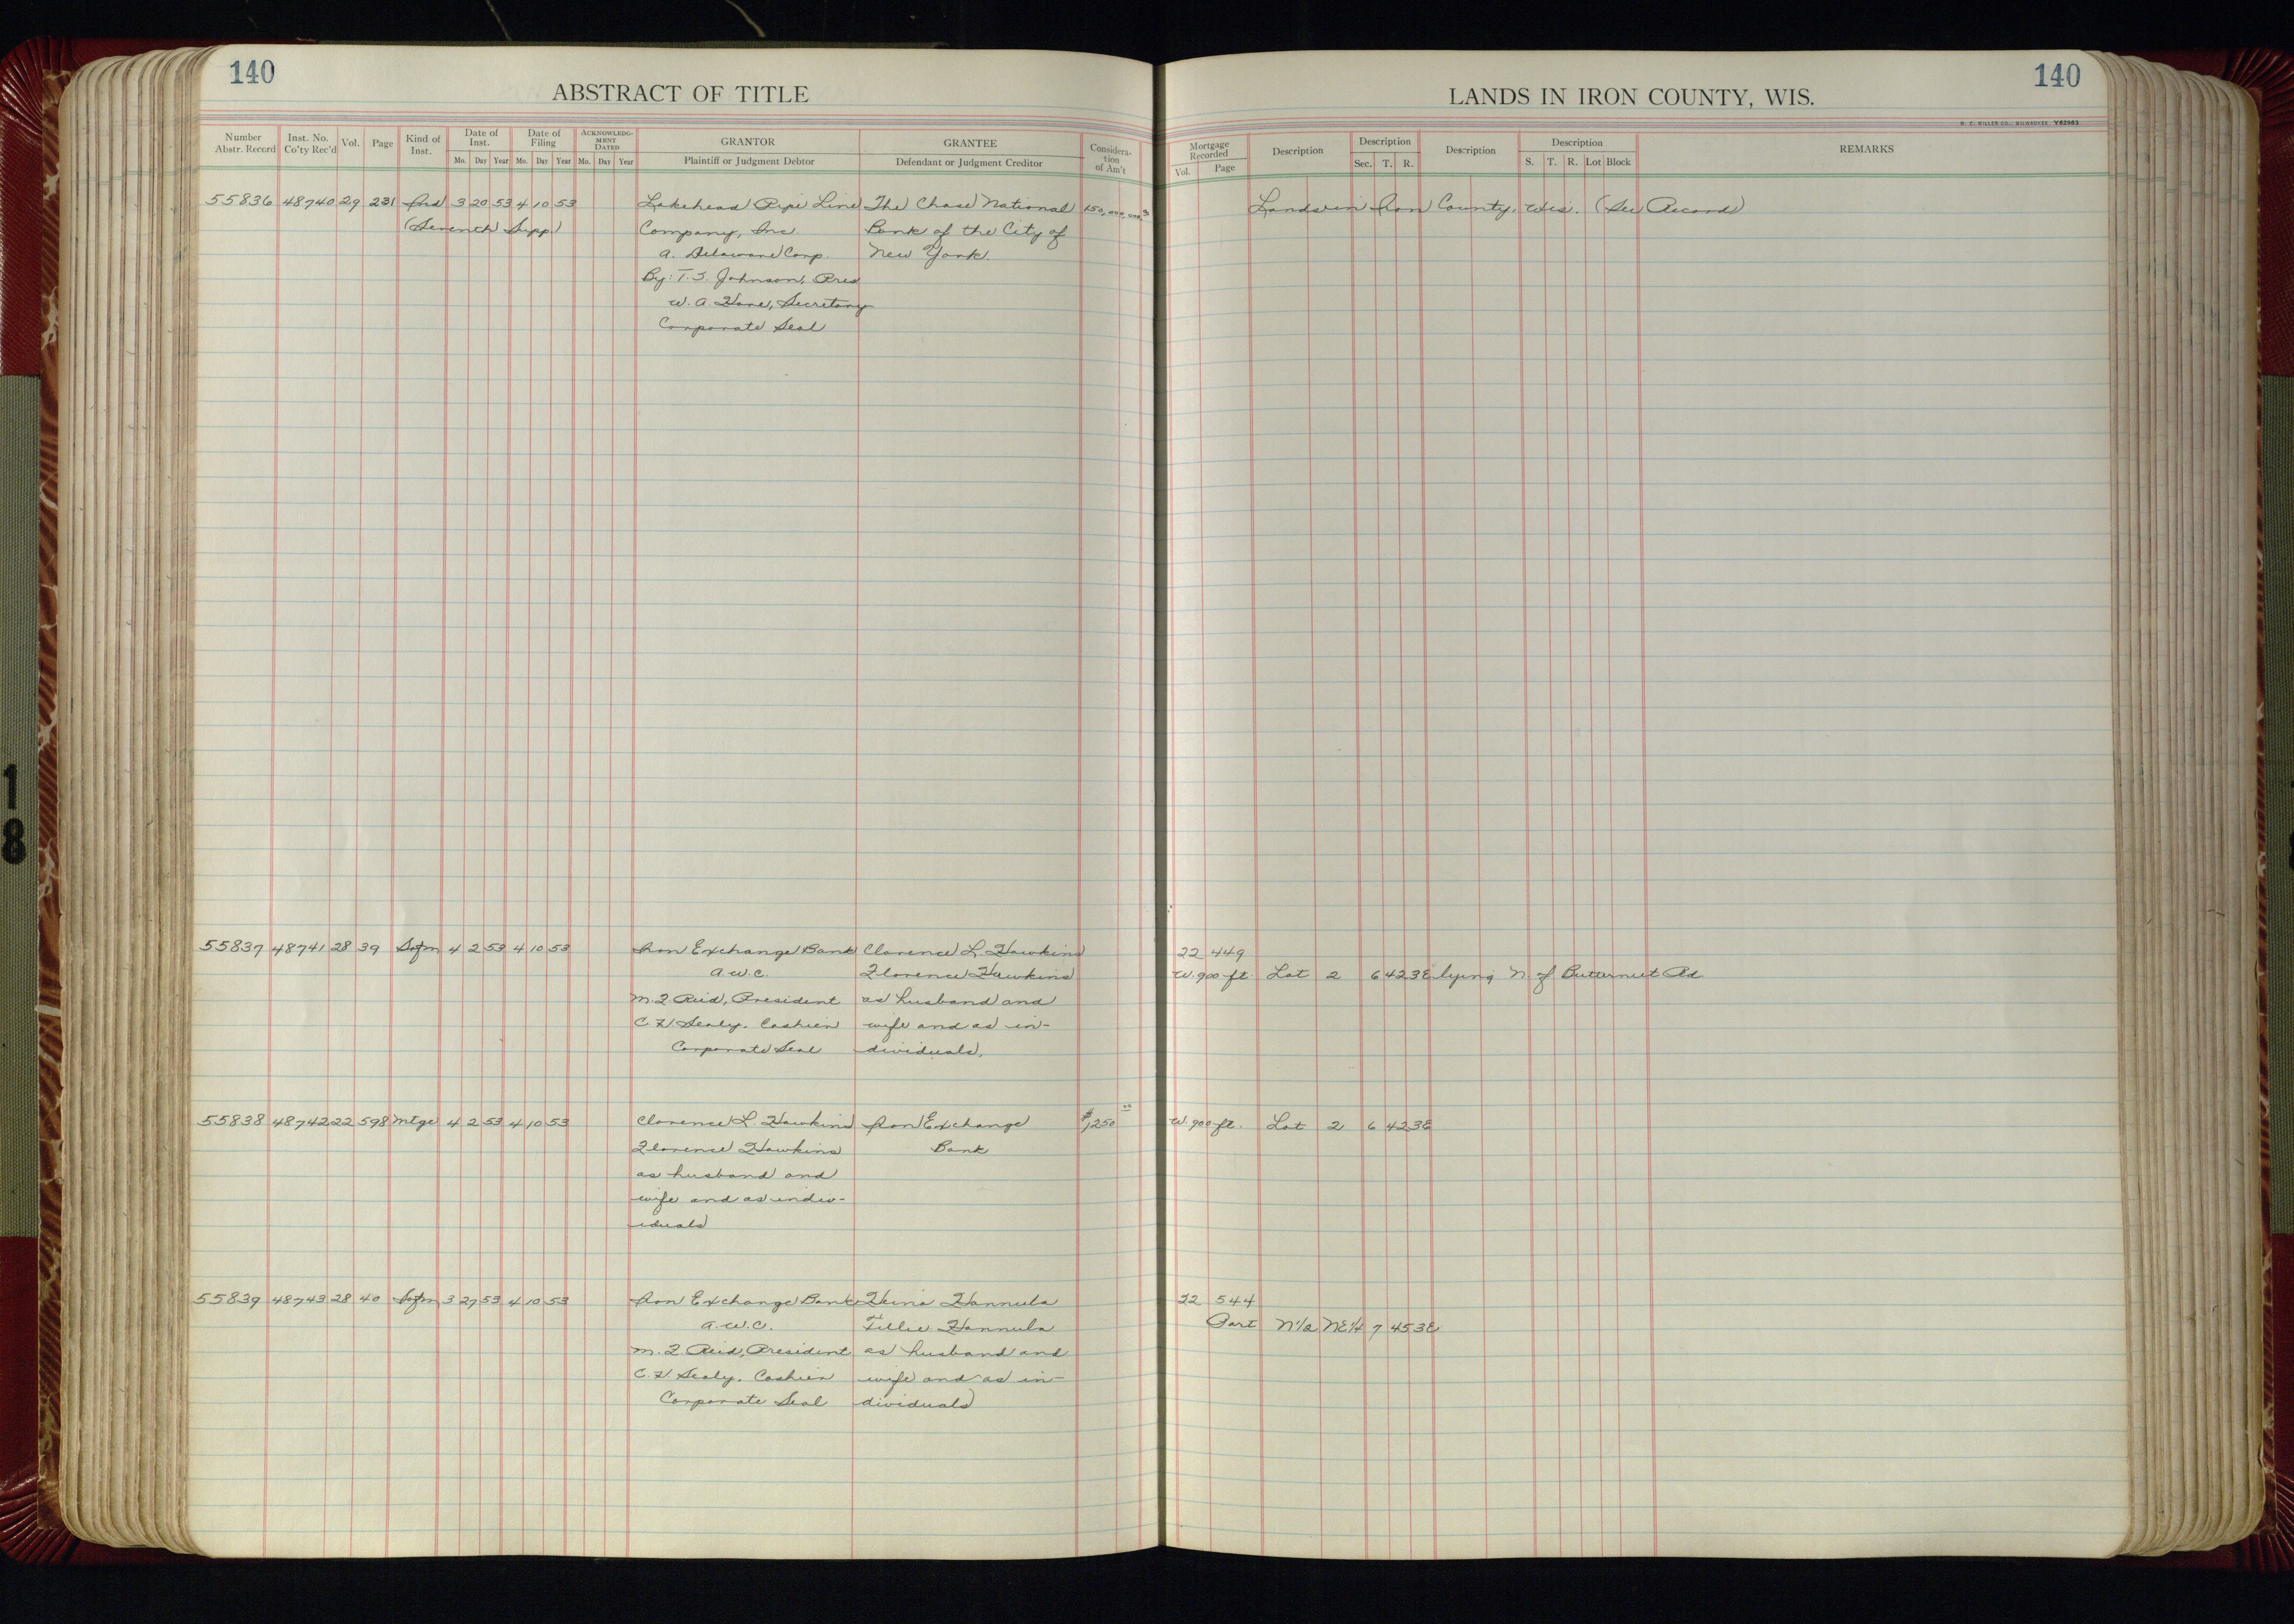 140
ABSTRACT OF TITLE
Number Abstr. Record | Inst. No. Co'ty Rec'd | Vol. | Page | Kind of Inst. | Date of Inst. Mo. Day Year | Date of Filing Mo. Day Year | ACKNOWLEDGMENT DATED Mo. Day Year | GRANTOR Plaintiff or Judgment Debtor | GRANTEE Defendant or Judgment Creditor | Consideration of Am't
55836 48740 29 231 Ind 3 20 53 4 10 53 Lakehead Pipe Line The Chase National 150,000,000.
(Seventh Supp) Company, Inc. Bank of the City of
a. Delaware Corp. New York.
By: T.S. Johnson, Pres
W. A. Hane, Secretary
Corporate Seal
55837 48741 28 39 Satfm 4 2 53 4 10 53 Iron Exchange Bank Clarence L. Hawkins
a.w.c. Florence Hawkins
M. F. Reid, President as husband and
C. F. Sealy, Cashier wife and as in-
Corporate Seal dividuals.
55838 48742 22 598 Mtge 4 2 53 4 10 53 Clarence L. Hawkins Iron Exchange $1,250 00
Florence Hawkins Bank
as husband and
wife and as indiv-
iduals
55839 48743 28 40 Satfm 3 27 53 4 10 53 Iron Exchange Bank Heino Hannula
a.w.c. Tillie Hannula
M. F. Reid, President as husband and
C. F. Sealy, Cashier wife and as in-
Corporate Seal dividuals
140
LANDS IN IRON COUNTY, WIS.
H. C. MILLER CO., MILWAUKEE Y62983
Mortgage Recorded Vol. Page | Description | Description Sec. T. R. | Description | Description S. T. R. Lot Block | REMARKS
Lands in Iron County, Wis. (See Record)
22 449
W. 900 ft. Lot 2 6 42 3E lying N. of Butternut Rd
W. 900 ft. Lot 2 6 42 3E
22 544
Part N1/2 NE1/4 7 45 3E
1
8